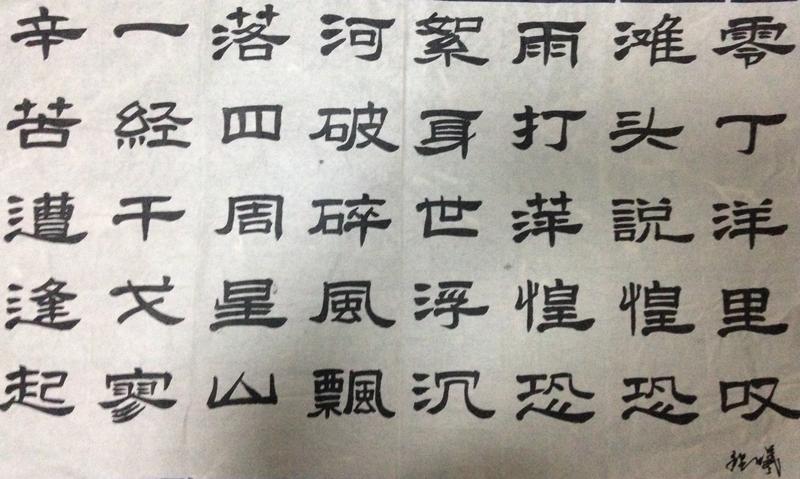 辛苦遭逢起
一経干戈寥
落四周星山
河破碎風飄
絮身世浮沉
雨打萍惶恐
滩头説惶恐
零丁洋里叹